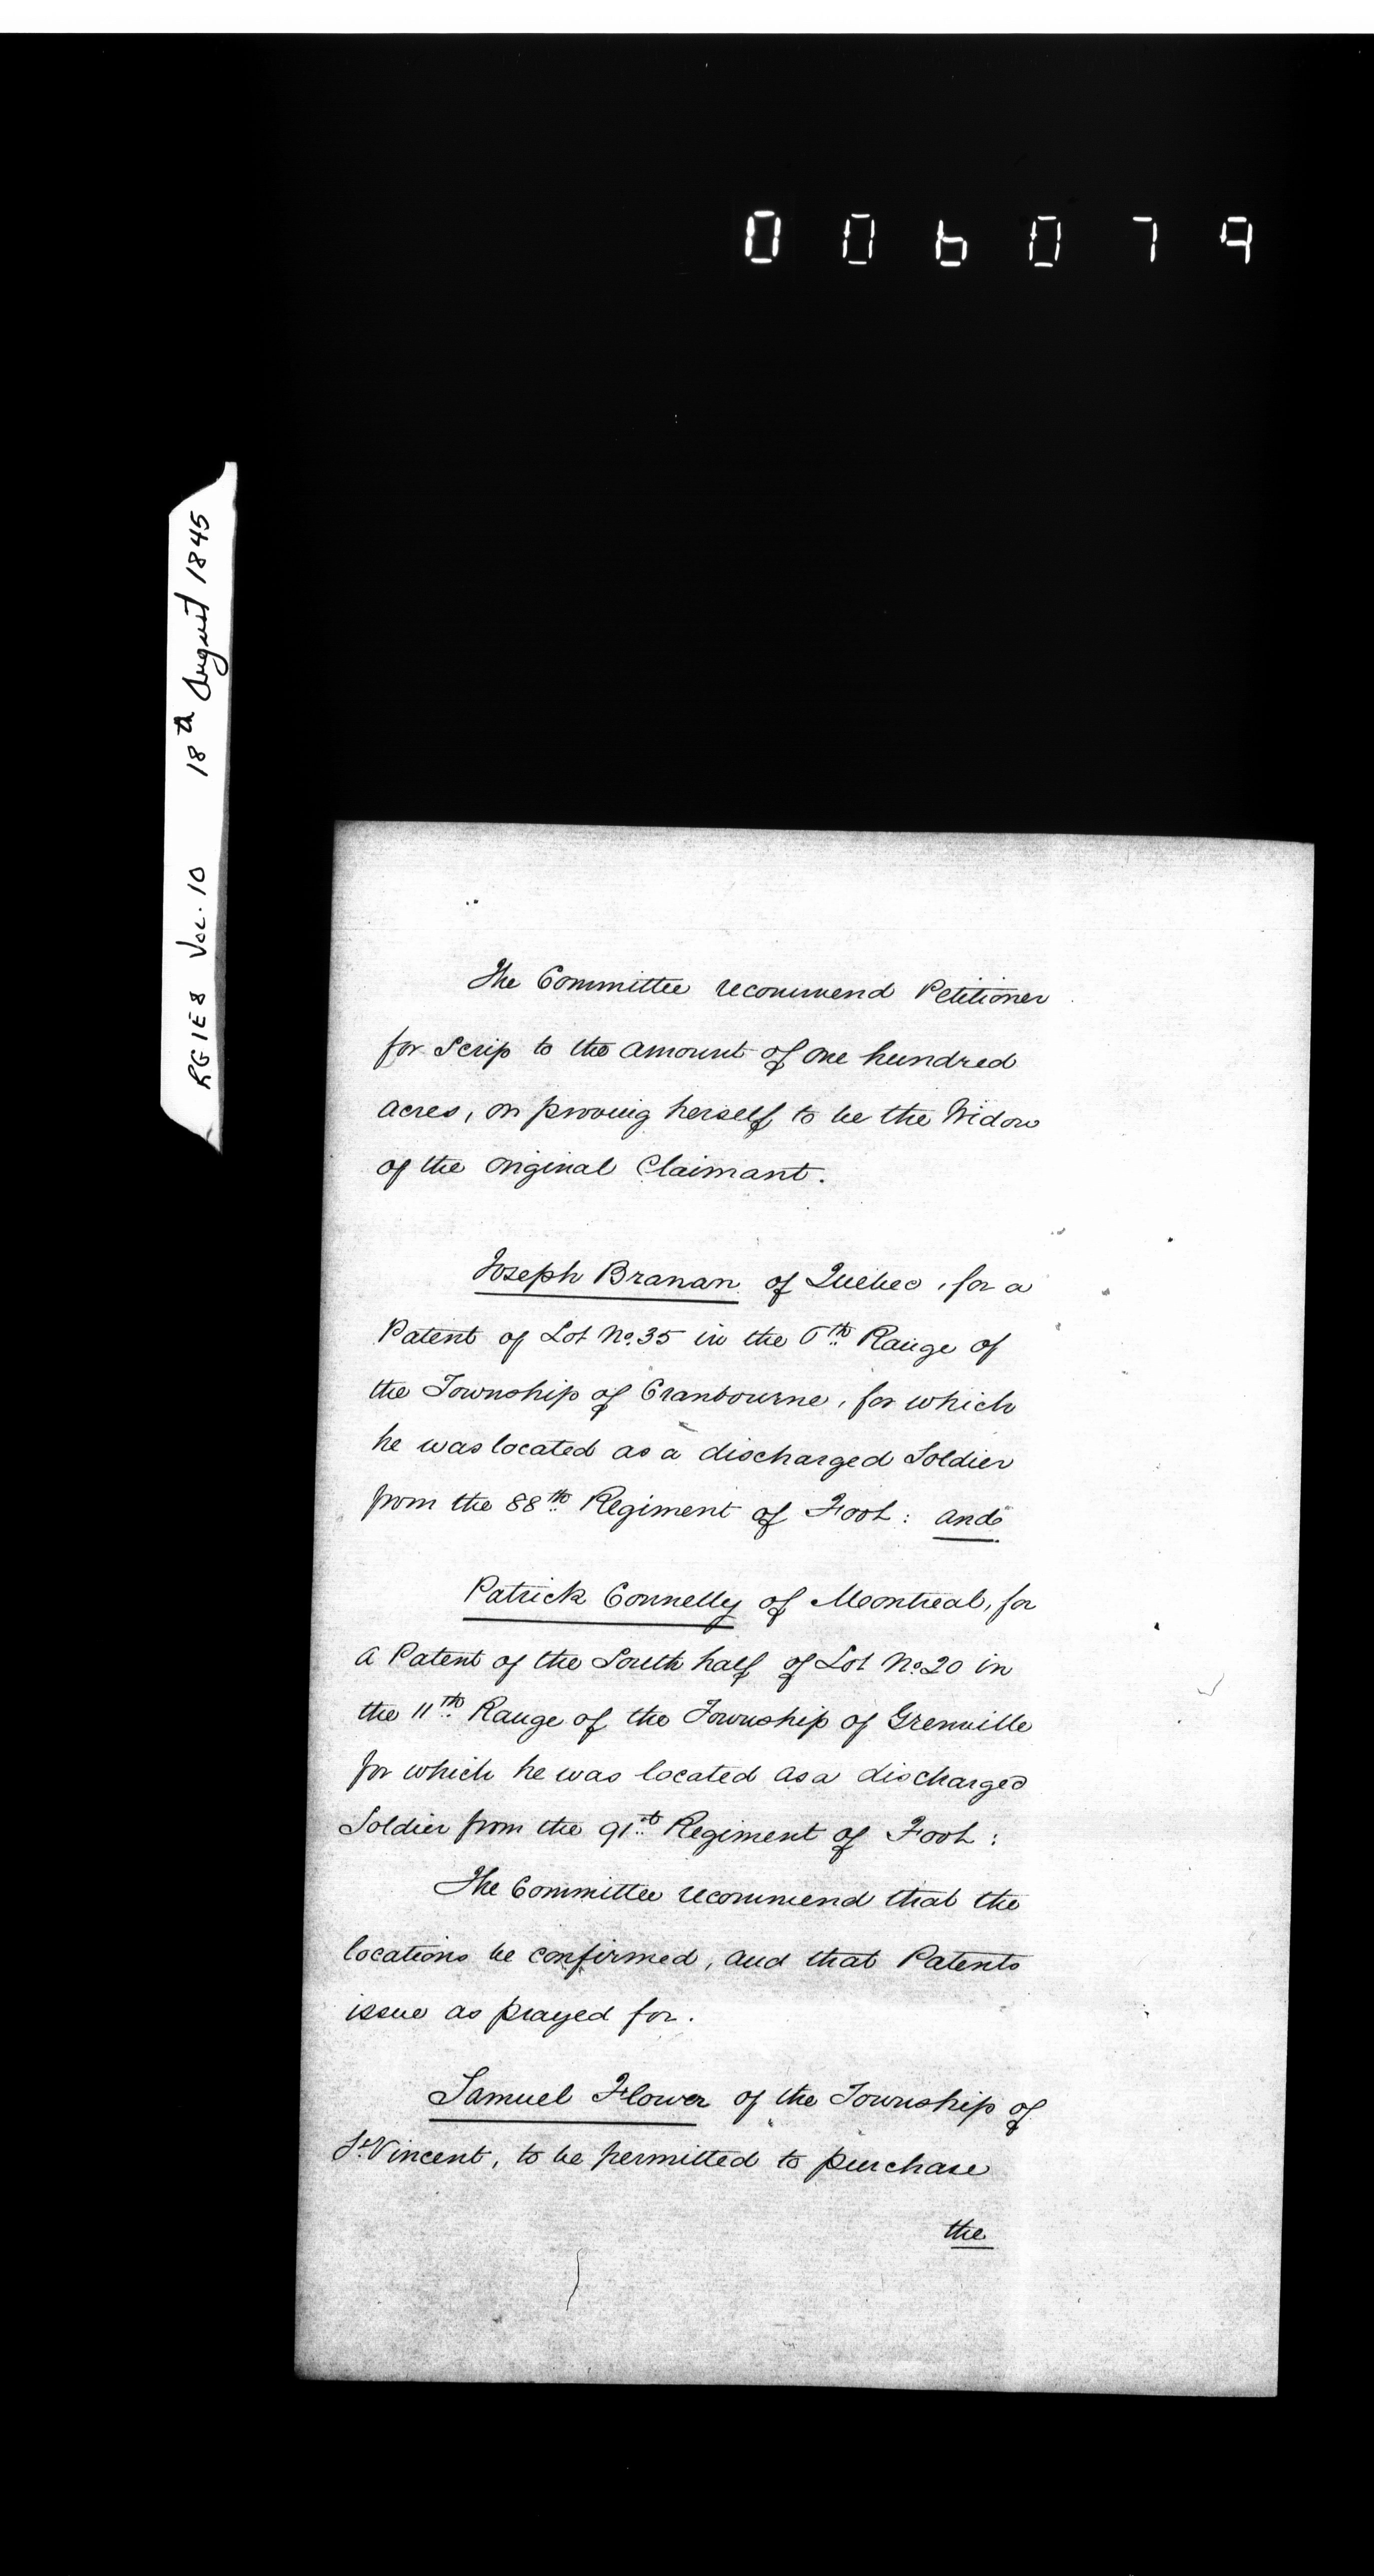 006079
RG 1 E 8 Vol. 10 18th August 1845
The Committee recommend Petitioner
for Scrip to the amount of one hundred
acres, on proving herself to be the Widow
of the original Claimant.
Joseph Branan of Quebec, for a
Patent of Lot No. 35 in the 6th Range of
the Township of Cranbourne, for which
he was located as a discharged Soldier
from the 88th Regiment of Foot: and
Patrick Connelly of Montreal, for
a Patent of the South half of Lot No. 20 in
the 11th Range of the Township of Grenville
for which he was located as a discharged
Soldier from the 91st Regiment of Foot:
The Committee recommend that the
locations be confirmed, and that Patents
issue as prayed for.
Samuel Flower of the Township of
St. Vincent, to be permitted to purchase
the